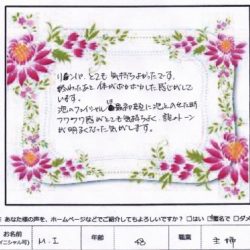 リンパ、とても気持ちよかったです。
終わったあと、体がポカポカした感じがして
います。
泡のフェイシャル 最初顔に泡とのせた時
フワフワ感がとても気持ちよく、顔のトーン
が明るくなった気がします。
あなた様の声を、ホームページなどでご紹介してもよろしいですか? □はい □匿名で □ダメ
お名前
(イニシャル可)
M.I
年齢
48
職業
主婦